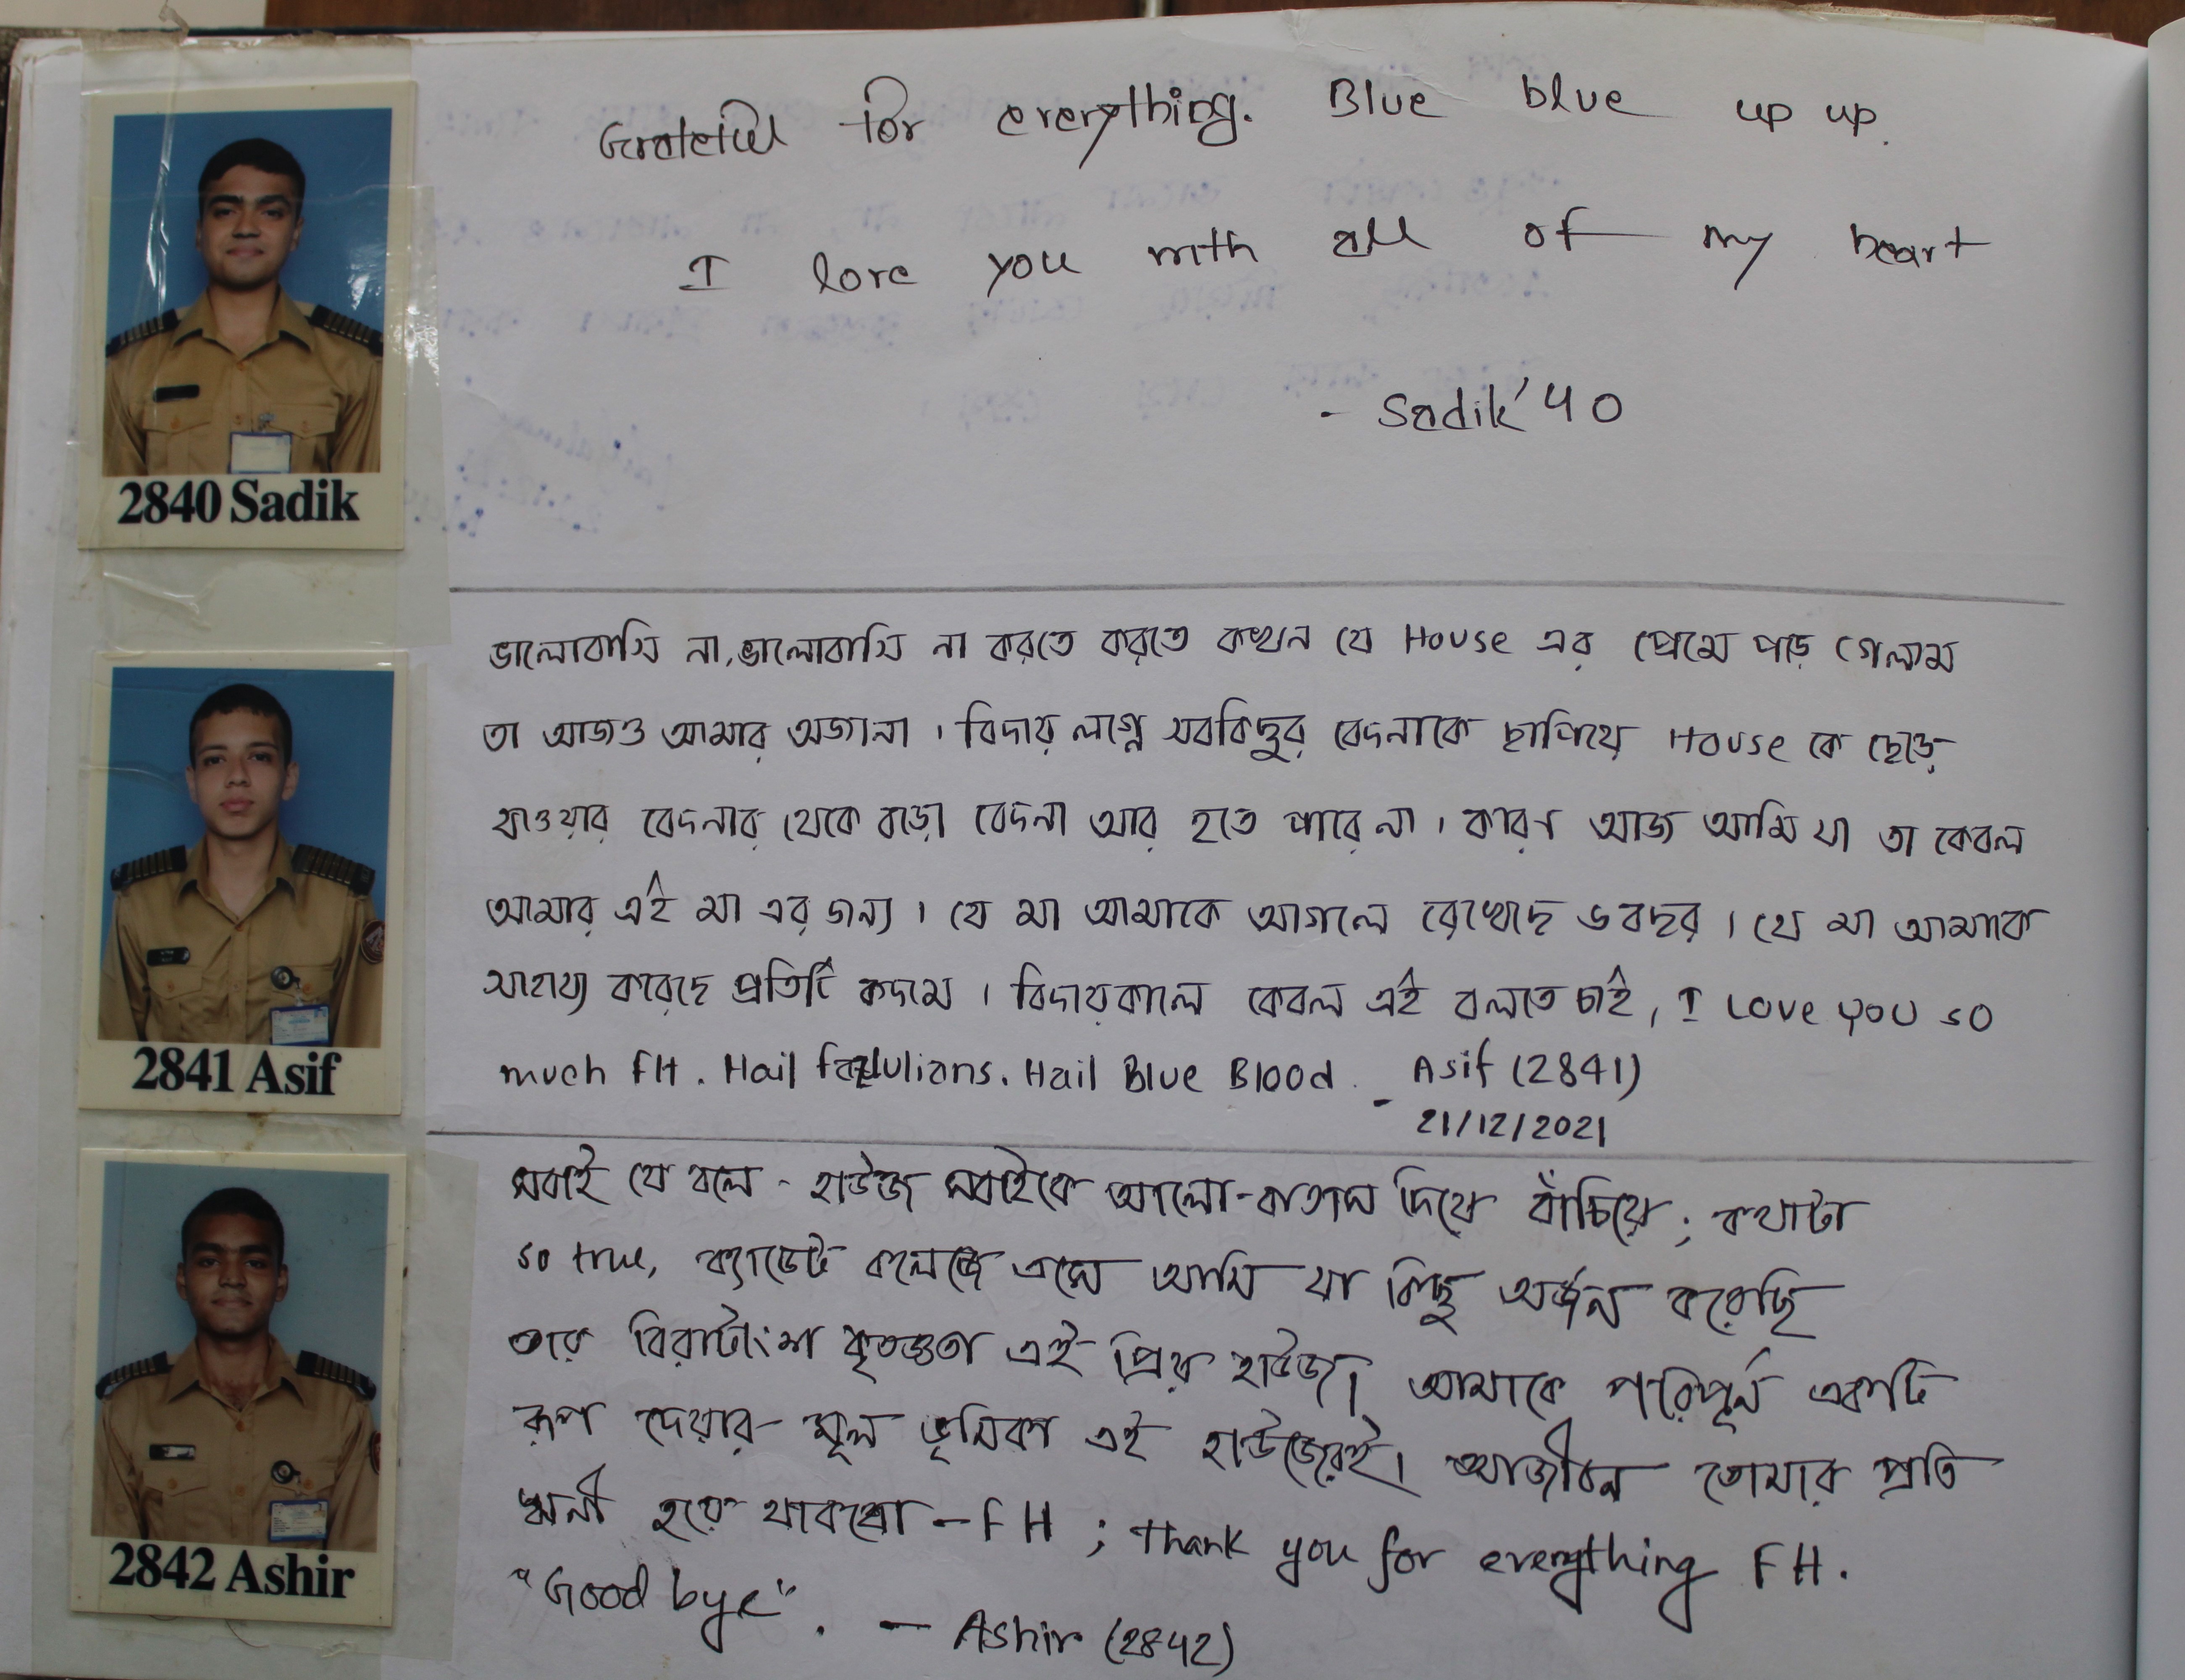 Grateful for everything. Blue blue up up.
I love you with all of my heart
- Sadik'40
2840 Sadik
ভালোবাসি না, ভালোবাসি না করতে করতে কখন যে House এর প্রেমে পড়ে গেলাম
তা আজও আমার অজানা। বিদায় লগ্নে সবকিছুর বেদনাকে ছাপিয়ে House কে ছেড়ে
যাওয়ার বেদনার থেকে বড়ো বেদনা আর হতে পারে না। কারণ আজ আমি যা তা কেবল
আমার এই মা এর জন্য। যে মা আমাকে আগলে রেখেছে ৬ বছর। যে মা আমাকে
সাহায্য করেছে প্রতিটি কদমে। বিদায়কালে কেবল এই বলতে চাই, I Love you so
much FH. Hail fazlulians. Hail Blue Blood. - Asif (2841)
21/12/2021
2841 Asif
সবাই যে বলে - হাউজ সবাইকে আলো-বাতাস দিয়ে বাঁচিয়ে; কথাটা
so true, ক্যাডেট কলেজে এসে আমি যা কিছু অর্জন করেছি
তার বিরাটাংশ কৃতজ্ঞতা এই প্রিয় হাউজ। আমাকে পরিপূর্ন একটি
রূপ দেয়ার মূল ভূমিকা এই হাউজেরই। আজীবন তোমার প্রতি
ঋনী হয়ে থাকবো - FH ; thank you for everything FH.
"Good bye". - Ashir (2842)
2842 Ashir